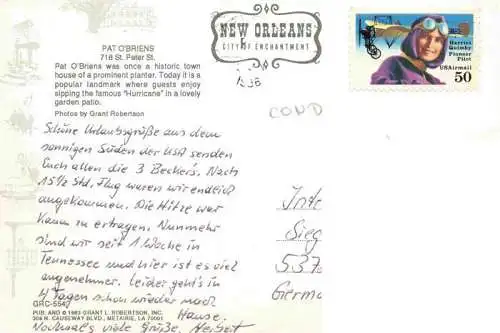 PAT O'BRIENS
718 St. Peter St.
Pat O'Briens was once a historic town
house of a prominent planter. Today it is a
popular landmark where guests enjoy
sipping the famous "Hurricane" in a lovely
garden patio.
Photos by Grant Robertson
NEW ORLEANS
CITY OF ENCHANTMENT
Harriet
Quimby
Pioneer
Pilot
USAirmail
50
COND
Schöne Urlaubsgrüße aus dem
sonnigen Süden der USA senden
Euch allen die 3 Becker's. Nach
15 1/2 Std. Flug waren wir endlich
angekommen. Die Hitze war
kaum zu ertragen. Nunmehr
sind wir seit 1 Woche in
Tennessee und hier ist es viel
angenehmer. Leider geht's in
4 Tagen schon wieder nach
Hause.
Nochmals viele Grüße. Herbert
Inte
Sieg
537
Germa
GRC-554
PUB. AND © 1983 GRANT L. ROBERTSON, INC.
308 N. CAUSEWAY BLVD., METAIRIE, LA 70001